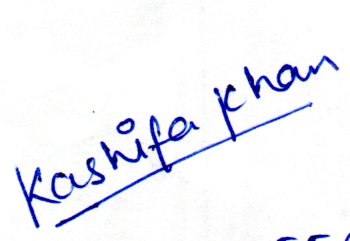 Kashifa Khan